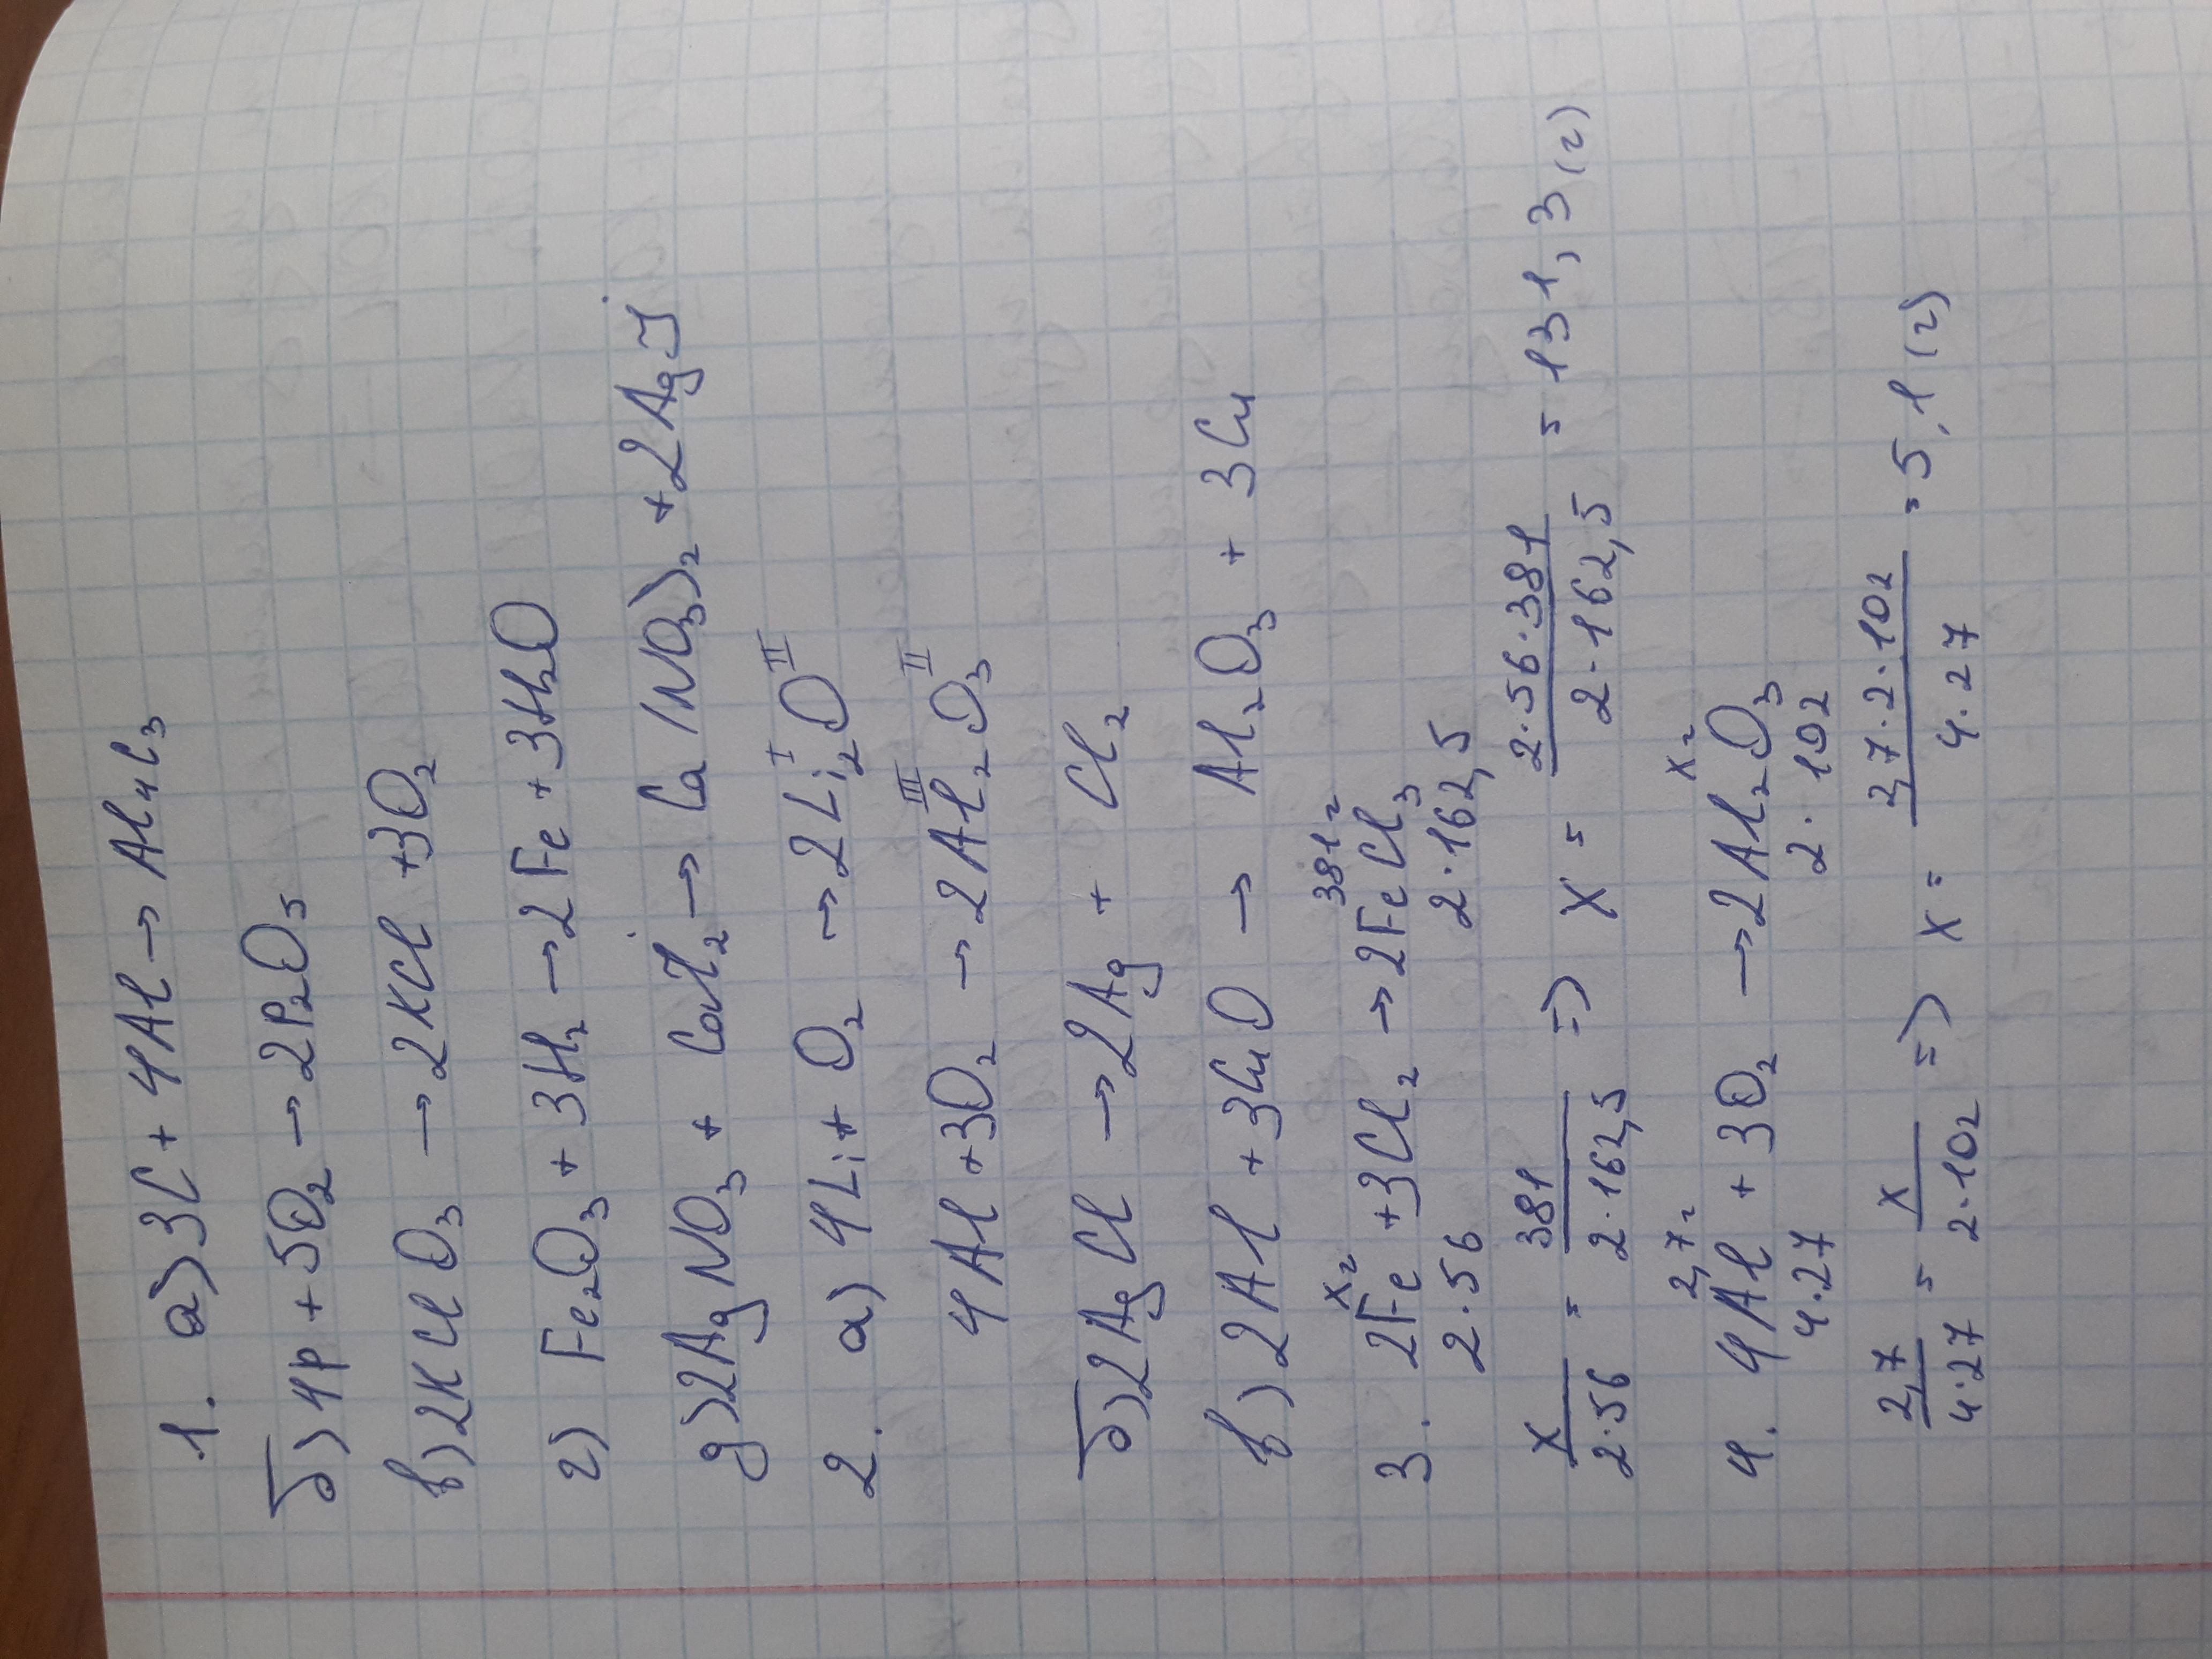 1. а) 3C + 4Al → Al₄C₃
б) 4P + 5O₂ → 2P₂O₅
в) 2KClO₃ → 2KCl + 3O₂
г) Fe₂O₃ + 3H₂ → 2Fe + 3H₂O
д) 2AgNO₃ + CaI₂ → Ca(NO₃)₂ + 2AgI
2. а) 4Li + O₂ → 2Li₂ᴵOᴵᴵ
4Al + 3O₂ → 2Al₂ᴵᴵᴵO₃ᴵᴵ
б) 2AgCl → 2Ag + Cl₂
в) 2Al + 3CuO → Al₂O₃ + 3Cu
xг 381г
3. 2Fe + 3Cl₂ → 2FeCl₃
2·56 2·162,5
x/2·56 = 381/2·162,5 => x = 2·56·381/2·162,5 = 131,3 (г)
2,7г xг
4. 4Al + 3O₂ → 2Al₂O₃
4·27 2·102
2,7/4·27 = x/2·102 => x = 2,7·2·102/4·27 = 5,1 (г)